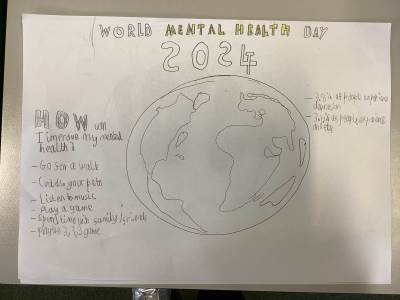 WORLD MENTAL HEALTH DAY
2024
HOW can
I improve my mental
health?
- Go for a walk
- Cuddle your pets
- Listen to music
- Play a game
- Spend time with family/friends
- 3,3,3 game
of people experience
depression
of people